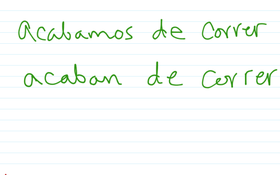 Acabamos de correr
acaban de correr